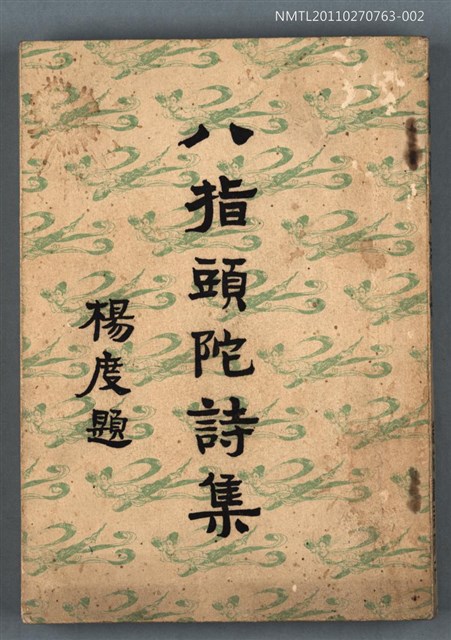 NMTL20110270763-002
八指頭陀詩集
楊度題